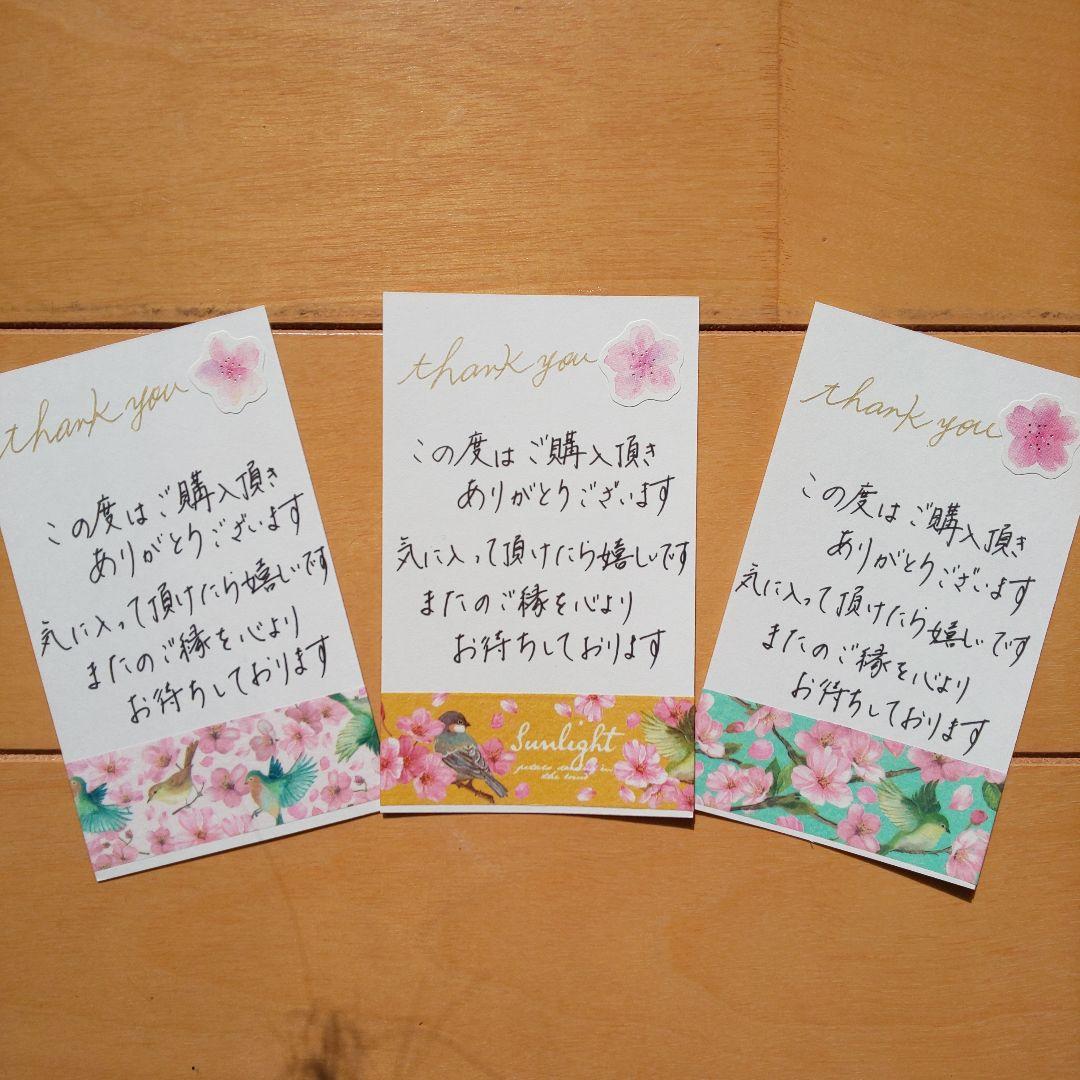 thank you
この度はご購入頂き
ありがとうございます
気に入って頂けたら嬉しいです
またのご縁を心より
お待ちしております
thank you
この度はご購入頂き
ありがとうございます
気に入って頂けたら嬉しいです
またのご縁を心より
お待ちしております
Sunlight
thank you
この度はご購入頂き
ありがとうございます
気に入って頂けたら嬉しいです
またのご縁を心より
お待ちしております